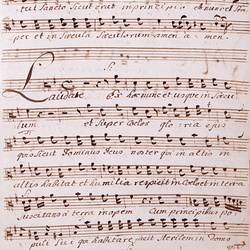 tui Sancto sicut erat in principio et nunc et sem
per et in sæcula sæculorum amen amen.
Laudate ex hoc nunc et usque in sæcu
lum et super Cœlos gloria ejus
quis sicut Dominus Deus noster qui in altis in
altis habitat et humilia respicit in Cœlo et in terra
suscitans a terra inopem Cum principibus po
puli sui qui habitare facit sterilem Domo